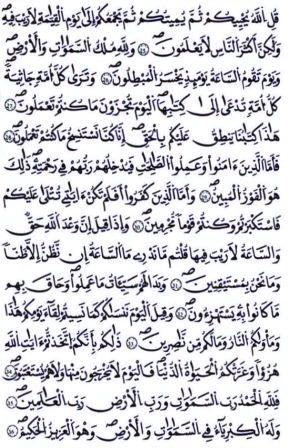 قُلِ ٱللَّهُ يُحْيِيكُمْ ثُمَّ يُمِيتُكُمْ ثُمَّ يَجْمَعُكُمْ إِلَىٰ يَوْمِ ٱلْقِيَٰمَةِ لَا رَيْبَ فِيهِ
وَلَٰكِنَّ أَكْثَرَ ٱلنَّاسِ لَا يَعْلَمُونَ ۝ وَلِلَّهِ مُلْكُ ٱلسَّمَٰوَٰتِ وَٱلْأَرْضِ
وَيَوْمَ تَقُومُ ٱلسَّاعَةُ يَوْمَئِذٍ يَخْسَرُ ٱلْمُبْطِلُونَ ۝ وَتَرَىٰ كُلَّ أُمَّةٍ جَاثِيَةً
كُلُّ أُمَّةٍ تُدْعَىٰ إِلَىٰ كِتَٰبِهَا ٱلْيَوْمَ تُجْزَوْنَ مَا كُنتُمْ تَعْمَلُونَ ۝
هَٰذَا كِتَٰبُنَا يَنطِقُ عَلَيْكُم بِٱلْحَقِّ إِنَّا كُنَّا نَسْتَنسِخُ مَا كُنتُمْ تَعْمَلُونَ ۝
فَأَمَّا ٱلَّذِينَ ءَامَنُوا۟ وَعَمِلُوا۟ ٱلصَّٰلِحَٰتِ فَيُدْخِلُهُمْ رَبُّهُمْ فِى رَحْمَتِهِۦ ذَٰلِكَ
هُوَ ٱلْفَوْزُ ٱلْمُبِينُ ۝ وَأَمَّا ٱلَّذِينَ كَفَرُوٓا۟ أَفَلَمْ تَكُنْ ءَايَٰتِى تُتْلَىٰ عَلَيْكُمْ
فَٱسْتَكْبَرْتُمْ وَكُنتُمْ قَوْمًا مُّجْرِمِينَ ۝ وَإِذَا قِيلَ إِنَّ وَعْدَ ٱللَّهِ حَقٌّ
وَٱلسَّاعَةُ لَا رَيْبَ فِيهَا قُلْتُم مَّا نَدْرِى مَا ٱلسَّاعَةُ إِن نَّظُنُّ إِلَّا ظَنًّا
وَمَا نَحْنُ بِمُسْتَيْقِنِينَ ۝ وَبَدَا لَهُمْ سَيِّـَٔاتُ مَا عَمِلُوا۟ وَحَاقَ بِهِم
مَّا كَانُوا۟ بِهِۦ يَسْتَهْزِءُونَ ۝ وَقِيلَ ٱلْيَوْمَ نَنسَىٰكُمْ كَمَا نَسِيتُمْ لِقَآءَ يَوْمِكُمْ هَٰذَا
وَمَأْوَىٰكُمُ ٱلنَّارُ وَمَا لَكُم مِّن نَّٰصِرِينَ ۝ ذَٰلِكُم بِأَنَّكُمُ ٱتَّخَذْتُمْ ءَايَٰتِ ٱللَّهِ
هُزُوًا وَغَرَّتْكُمُ ٱلْحَيَوٰةُ ٱلدُّنْيَا فَٱلْيَوْمَ لَا يُخْرَجُونَ مِنْهَا وَلَا هُمْ يُسْتَعْتَبُونَ ۝
فَلِلَّهِ ٱلْحَمْدُ رَبِّ ٱلسَّمَٰوَٰتِ وَرَبِّ ٱلْأَرْضِ رَبِّ ٱلْعَٰلَمِينَ ۝
وَلَهُ ٱلْكِبْرِيَآءُ فِى ٱلسَّمَٰوَٰتِ وَٱلْأَرْضِ وَهُوَ ٱلْعَزِيزُ ٱلْحَكِيمُ ۝